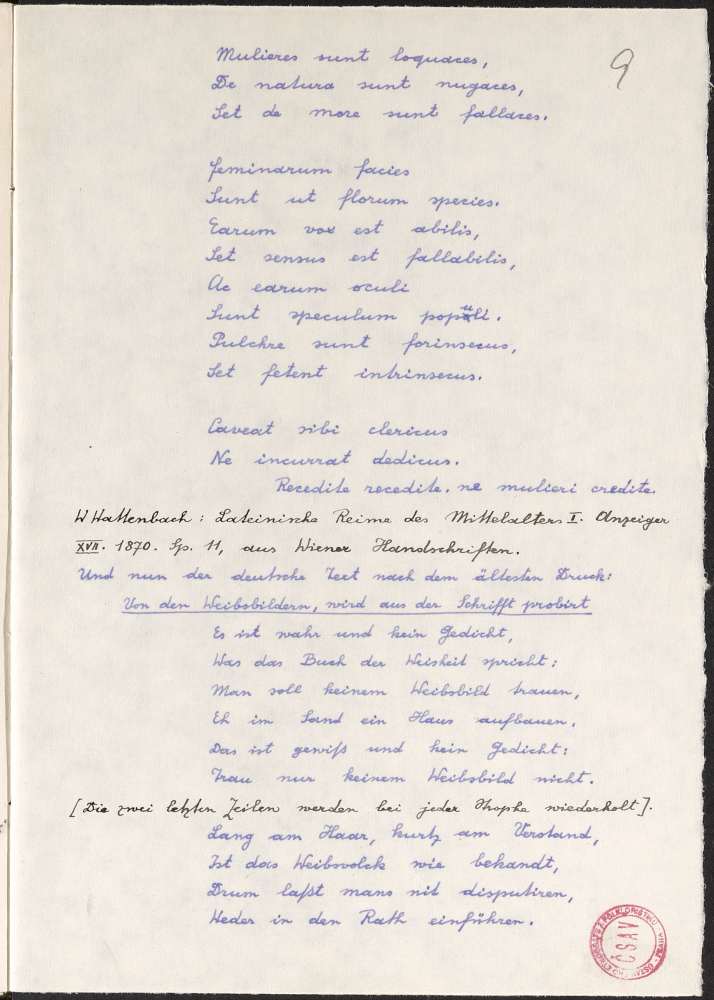 9
Mulieres sunt loquaces,
De natura sunt nugaces,
Set de more sunt fallaces.
feminarum facies
Sunt ut florum species.
Earum vox est abilis,
Set sensus est fallabilis,
Ac earum oculi
Sunt speculum populi.
Pulchre sunt forinsecus,
Set fetent intrinsecus.
Caveat sibi clericus
Ne incurrat dedicus.
Recedite recedite. ne mulieri credite.
W Wattenbach: Lateinische Reime des Mittelalters I. Anzeiger
XVII. 1870. Sp. 11, aus Wiener Handschriften.
Und nun der deutsche Text nach dem ältesten Druck:
Von den Weibsbildern, wird aus der Schrifft probirt
Es ist wahr und kein Gedicht,
Was das Buch der Weisheit spricht:
Man soll keinem Weibsbild trauen,
Eh im Sand ein Haus aufbauen.
Das ist gewiß und kein Gedicht:
Trau nur keinem Weibsbild nicht.
[Die zwei letzten Zeilen werden bei jeder Strophe wiederholt].
Lang am Haar, kurtz am Verstand,
Ist das Weibsvolck wie bekandt,
Drum laßt mans nit disputiren,
Weder in den Rath einführen.
ČSAV